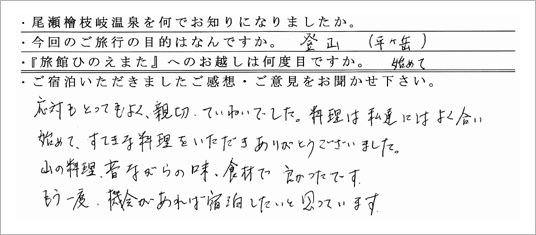 ・尾瀬檜枝岐温泉を何でお知りになりましたか。
・今回のご旅行の目的はなんですか。 登山（平ヶ岳）
・『旅館ひのえまた』へのお越しは何度目ですか。 始めて
・ご宿泊いただきましたご感想・ご意見をお聞かせ下さい。
応対もとってもよく、親切、ていねいでした。料理は私達にはよく合い
始めて、すてきな料理をいただきありがとうございました。
山の料理、昔ながらの味、食材で良かったです
もう一度、機会があれば宿泊したいと思っています